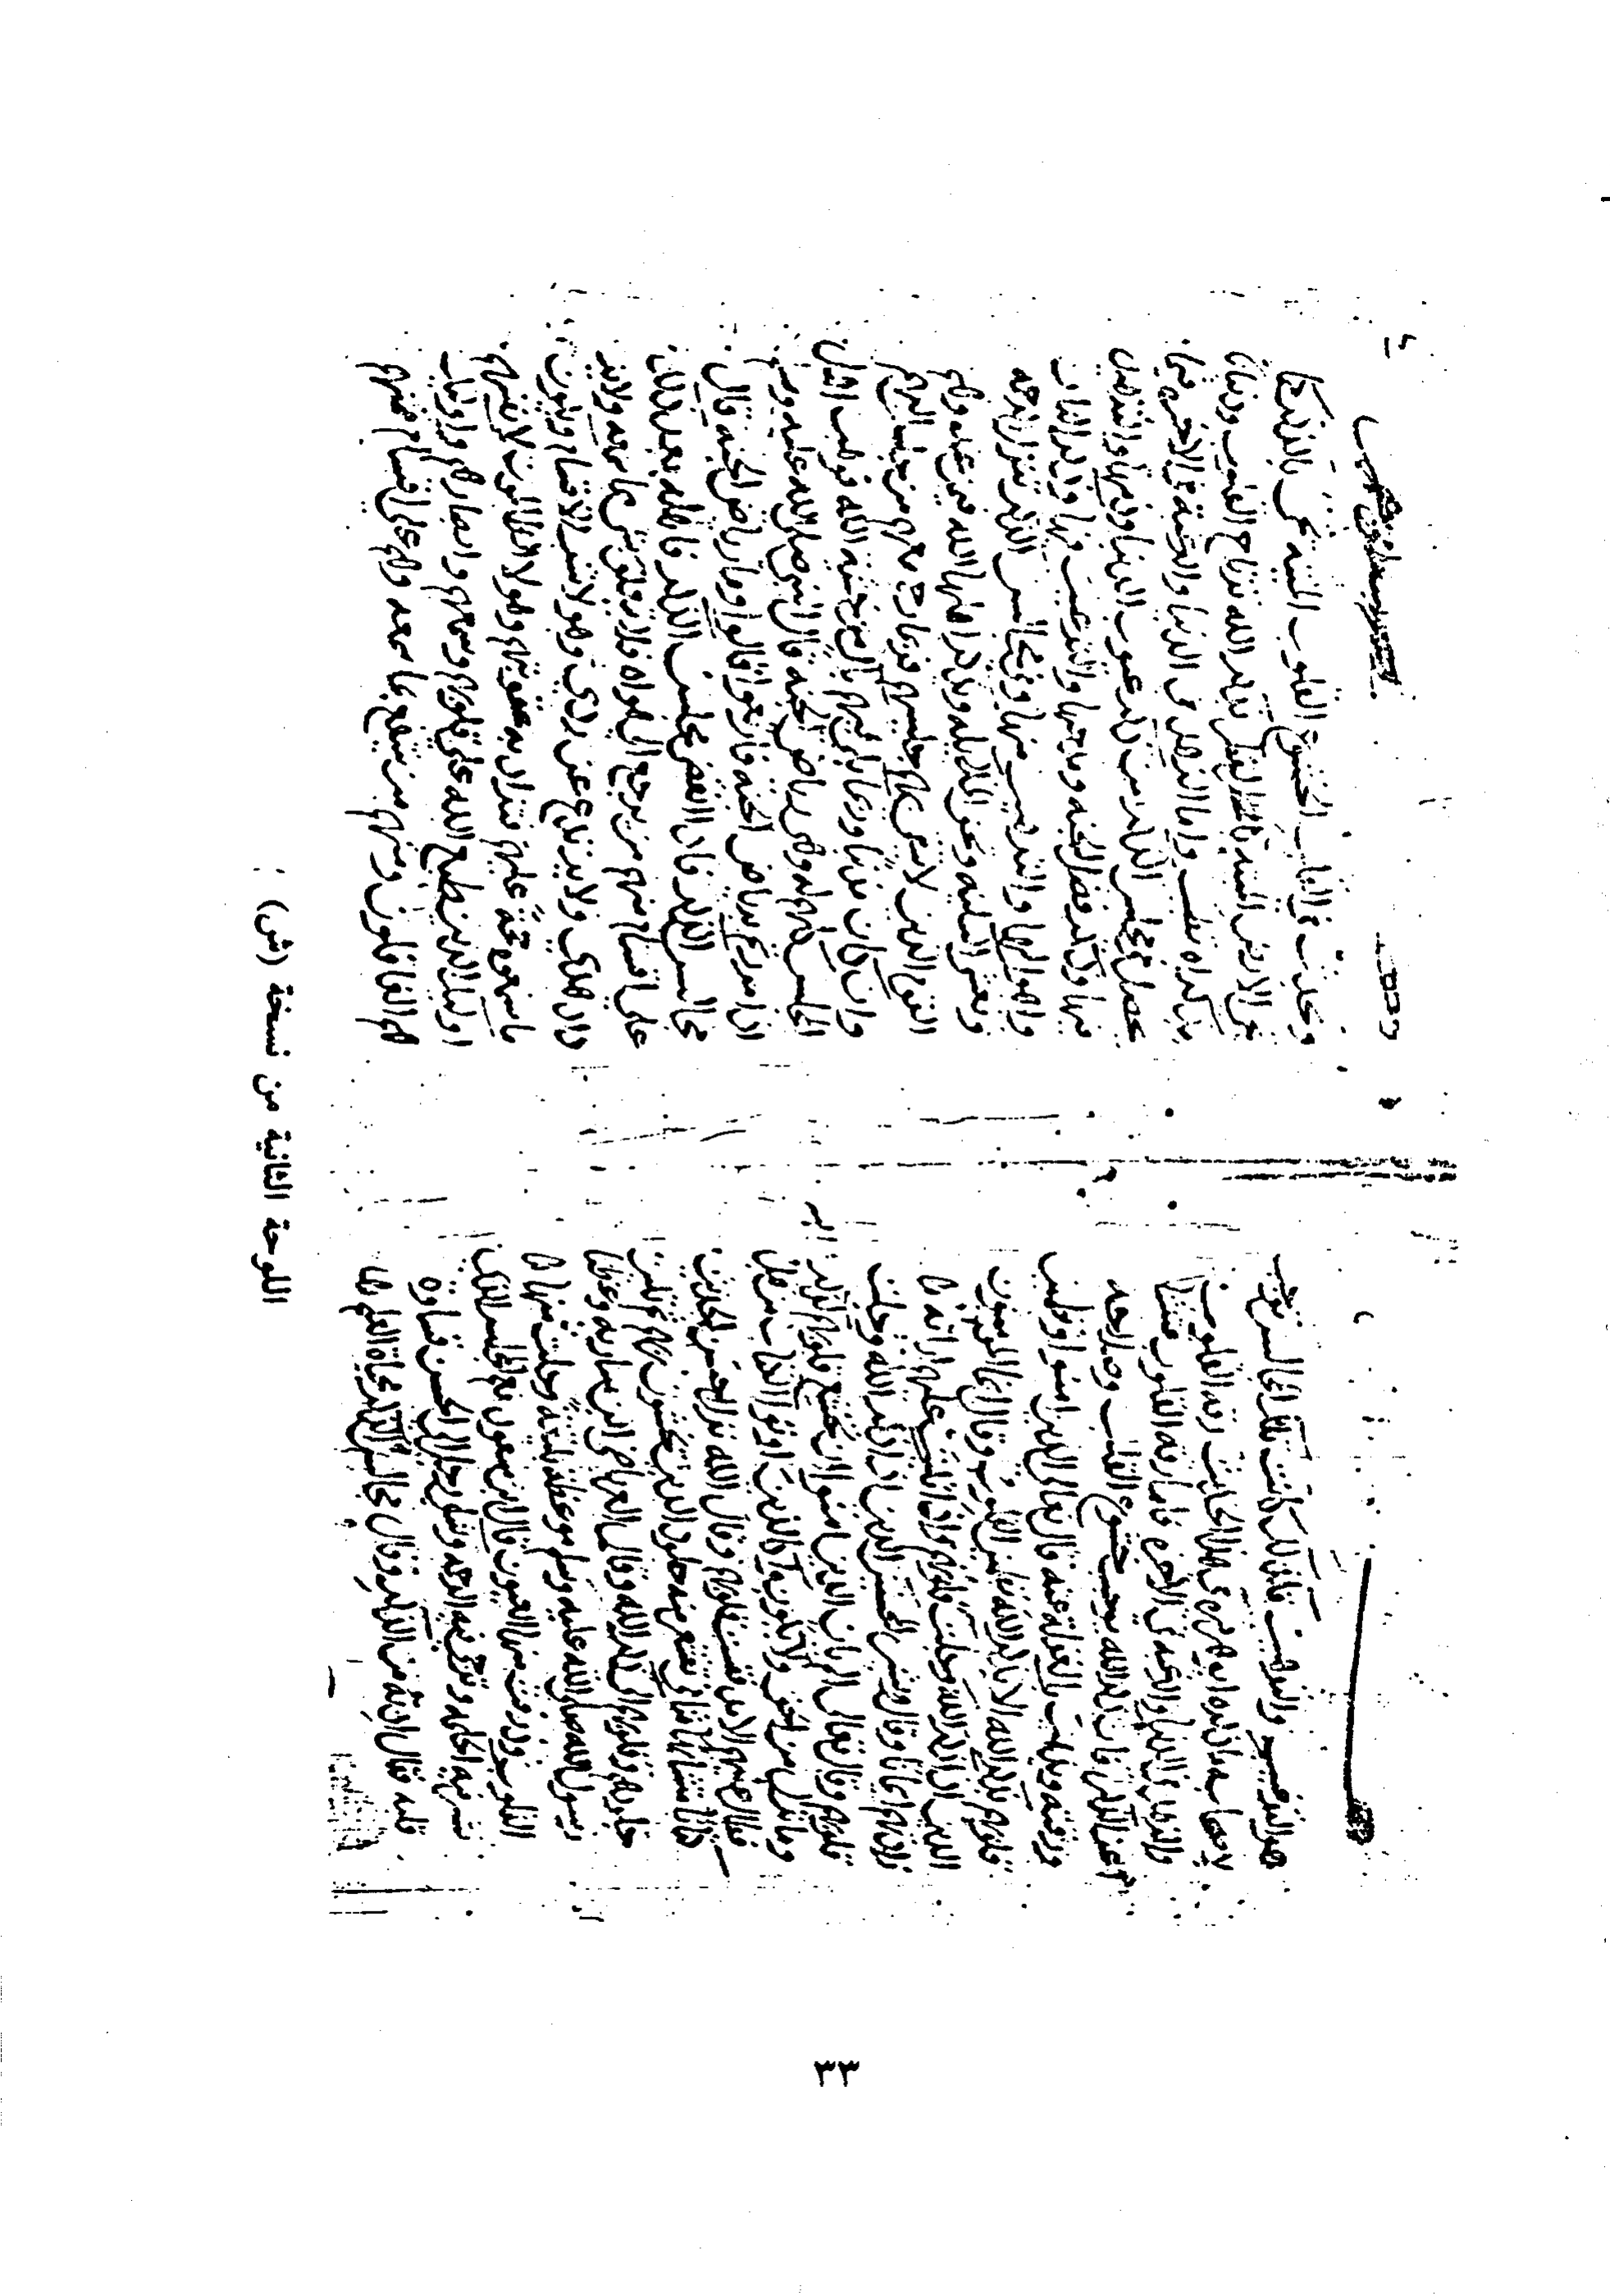 والترهيب والترغيب فلذلك كانت تلك المجالس توجب
لاصحابه ما ذكره ابو هريرة في هذا الحديث رقة القلوب
والزهد في الدنيا والرغبة في الاخرة فاما رقة القلوب فتنشأ
عن الذكر فان ذكر الله يوجب خشوع القلب وصلاحه
ورقته ويذهب بالغفلة عنه قال الله تعالى الذين امنوا وتطمئن
قلوبهم بذكر الله الا بذكر الله تطمئن القلوب وقال انما المؤمنون
الذين اذا ذكر الله وجلت قلوبهم واذا تليت عليهم اياته
زادتهم ايمانا وقال وبشر المخبتين الذين اذا ذكر الله وجلت
قلوبهم وقال تعالى الم يان للذين امنوا ان تخشع قلوبهم لذكر الله
وما نزل من الحق ولا يكونوا كالذين اوتوا الكتاب من قبل
فطال عليهم الامد فقست قلوبهم وقال الله نزل احسن الحديث
كتابا متشابها مثاني تقشعر منه جلود الذين يخشون ربهم ثم تلين
جلودهم وقلوبهم الى ذكر الله وقال العرباض بن سارية وعظنا
رسول الله صلى الله عليه وسلم موعظة بليغة وجلت منها
القلوب وذرفت منها العيون وقال ابن مسعود نعم المجلس الذي
تنشر فيه الحكمة وترجى فيه الرحمة وشكى رجل الى الحسن قساوة
قلبه فقال ادنه من الذكر وقال مجالس الذكر محياة العلم
وتحدث في القلب الخشوع القلوب الميتة تحيى بالذكر كما
تحيى الارض الميتة بالقطر بذكر الله ترتاح القلوب ودنيانا
بذكراه تطيب واما الزهد في الدنيا والرغبة في الاخرة فبما
يحصل في مجالس الذكر من ذكر عيوب الدنيا وذمها والتزهيد
فيها وذكر فضل الجنة ومدحها والترغيب فيها وذكر النار
واهوالها والترهيب منها وفي مجالس الذكر تنزل الرحمة
وتغشى السكينة وتحف الملائكة ويذكر اهلها الله فيمن عنده وهم
القوم الذين لا يشقى بهم جليسهم فربما رحم معهم من جلس اليهم
وان كان مذنبا وربما بكى فيهم باك من خشية الله فوهب اهل
المجلس كلهم له وهي رياض الجنة قال النبي صلى الله عليه وسلم
اذا مررتم برياض الجنة فارتعوا قالوا وما رياض الجنة قال
مجالس الذكر فاذا انقضى مجلس الذكر فاهله بعد ذلك
على اقسام فمنهم من يرجع الى هواه فلا يتعلق بشي مما سمعه ولا يزداد
هدى ولا يرتدع عن ردى وهؤلاء شر الاقسام ويكون
ما سمعوه حجة عليهم فتزداد به عقوبتهم وهؤلاء الظالمون لانفسهم
اولئك الذين طبع الله على قلوبهم وسمعهم وابصارهم واولئك
هم الغافلون ومنهم من ينتفع بما سمعه وهم على اقسام فمنهم
اللوحة الثانية من نسخة (ش)
٣٣